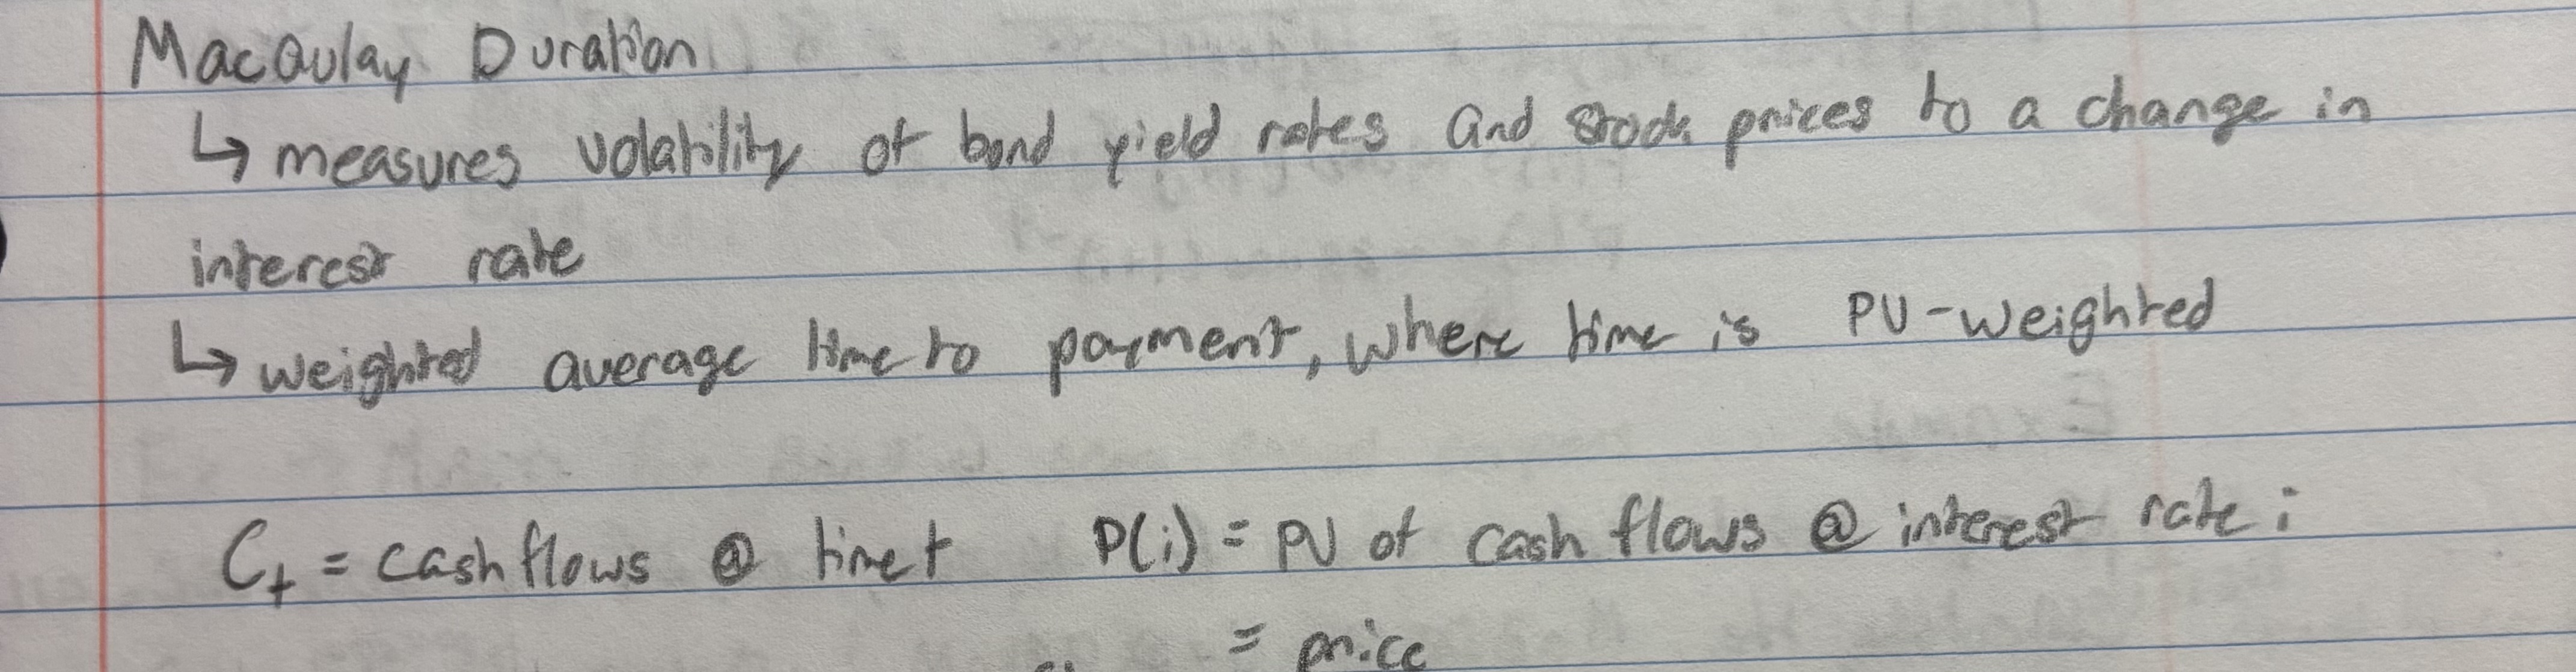 Macaulay Duration
↳ measures volatility of bond yield rates and stock prices to a change in
interest rate
↳ weighted average time to payment, where time is PV-weighted
Cₜ = cashflows @ time t P(i) = PV of cash flows @ interest rate i
= price